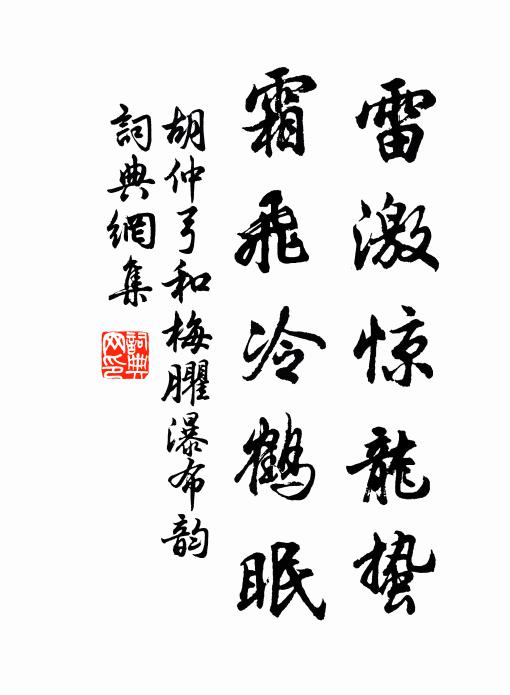 雷激惊龍蛰
霜飛冷鶴眠
胡仲弓和梅臞瀑布韵
詞典網集
詞典網印